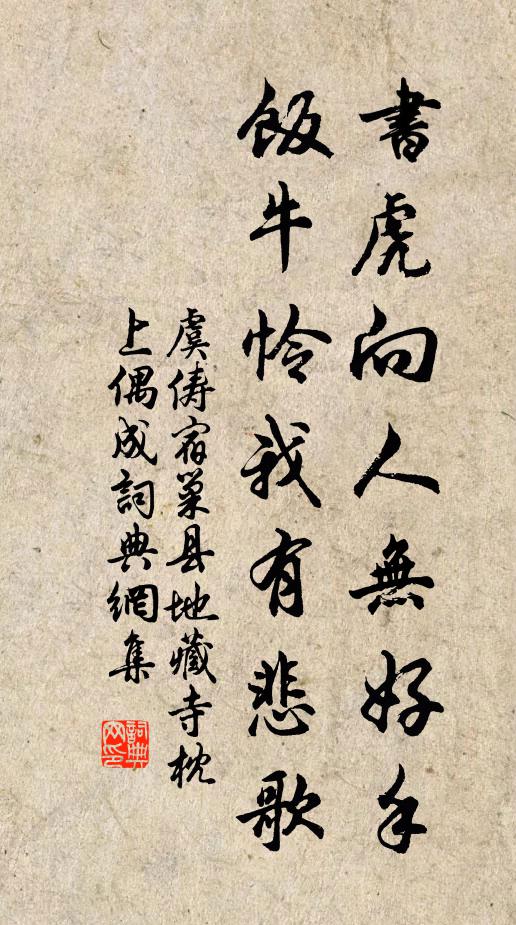 書虎向人無好手
飯牛怜我有悲歌
虞儔宿巢县地藏寺枕
上偶成詞典網集
詞典
网印